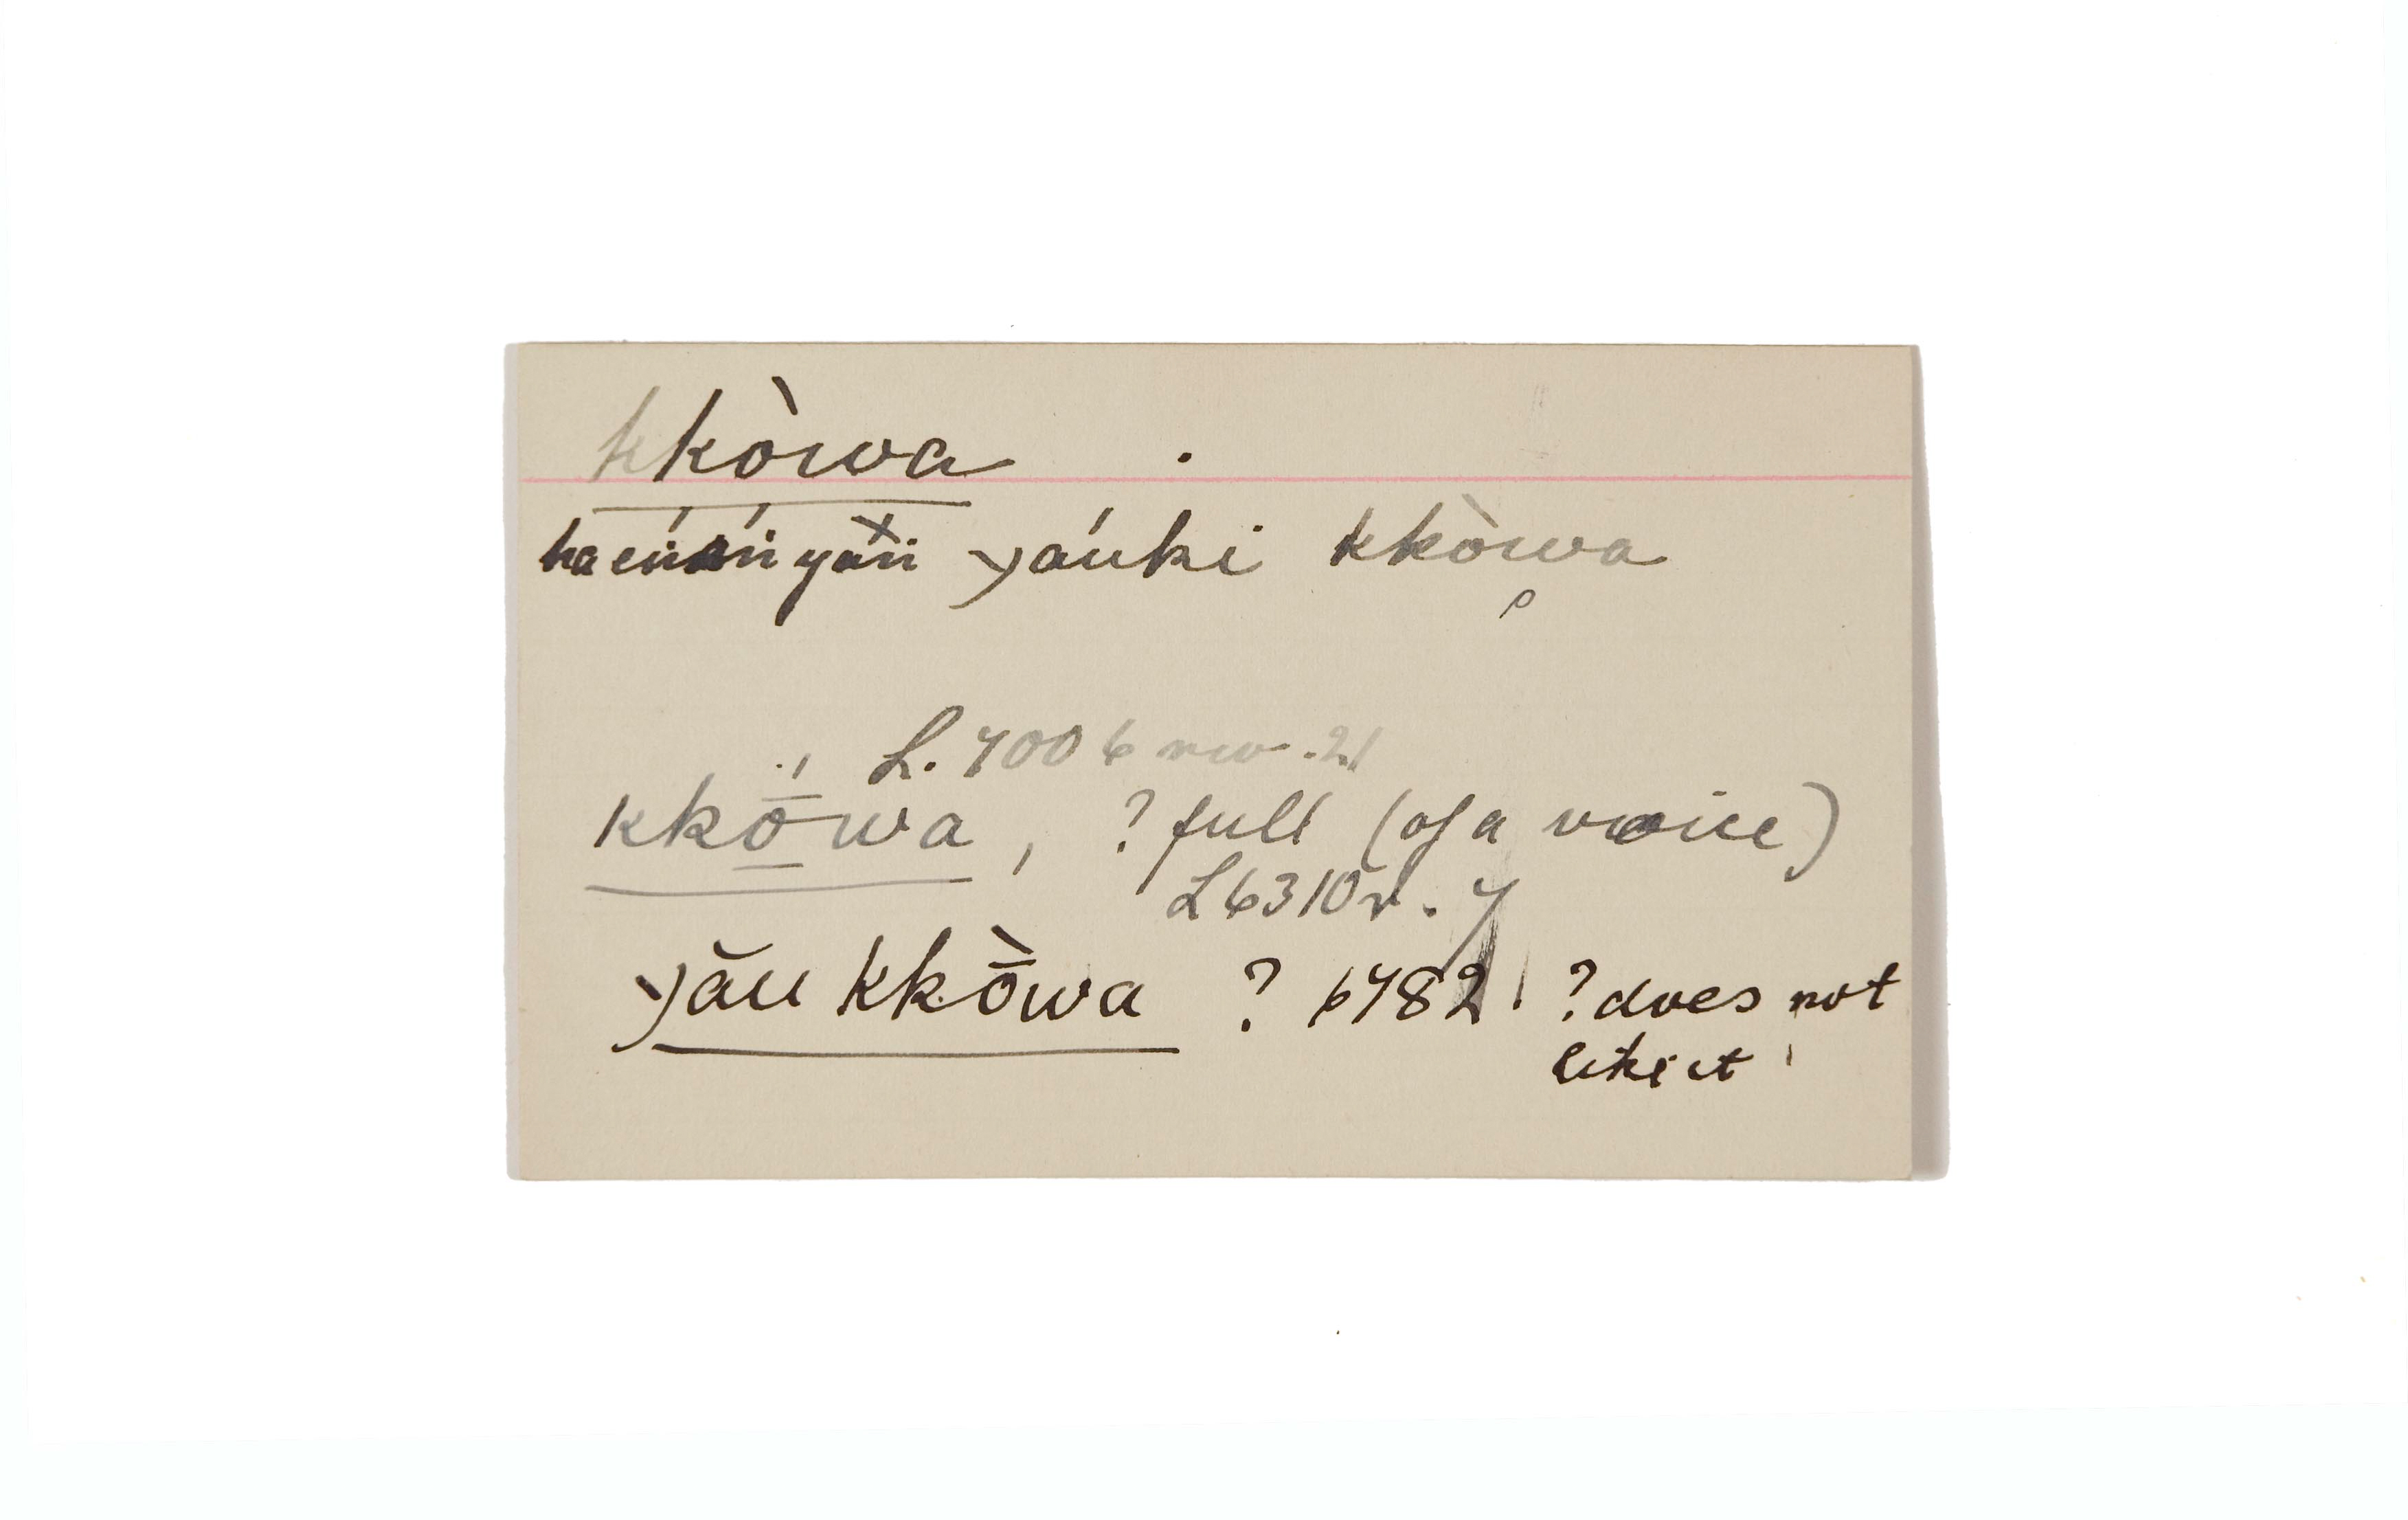 kkòwa .
)áuki kkòwa
L. 7006 rev. 21
kkṓ̱wa, ? full (of a voice)
L 6310r. 7
)ău kkṑwa ? 6782! ? does not
like it